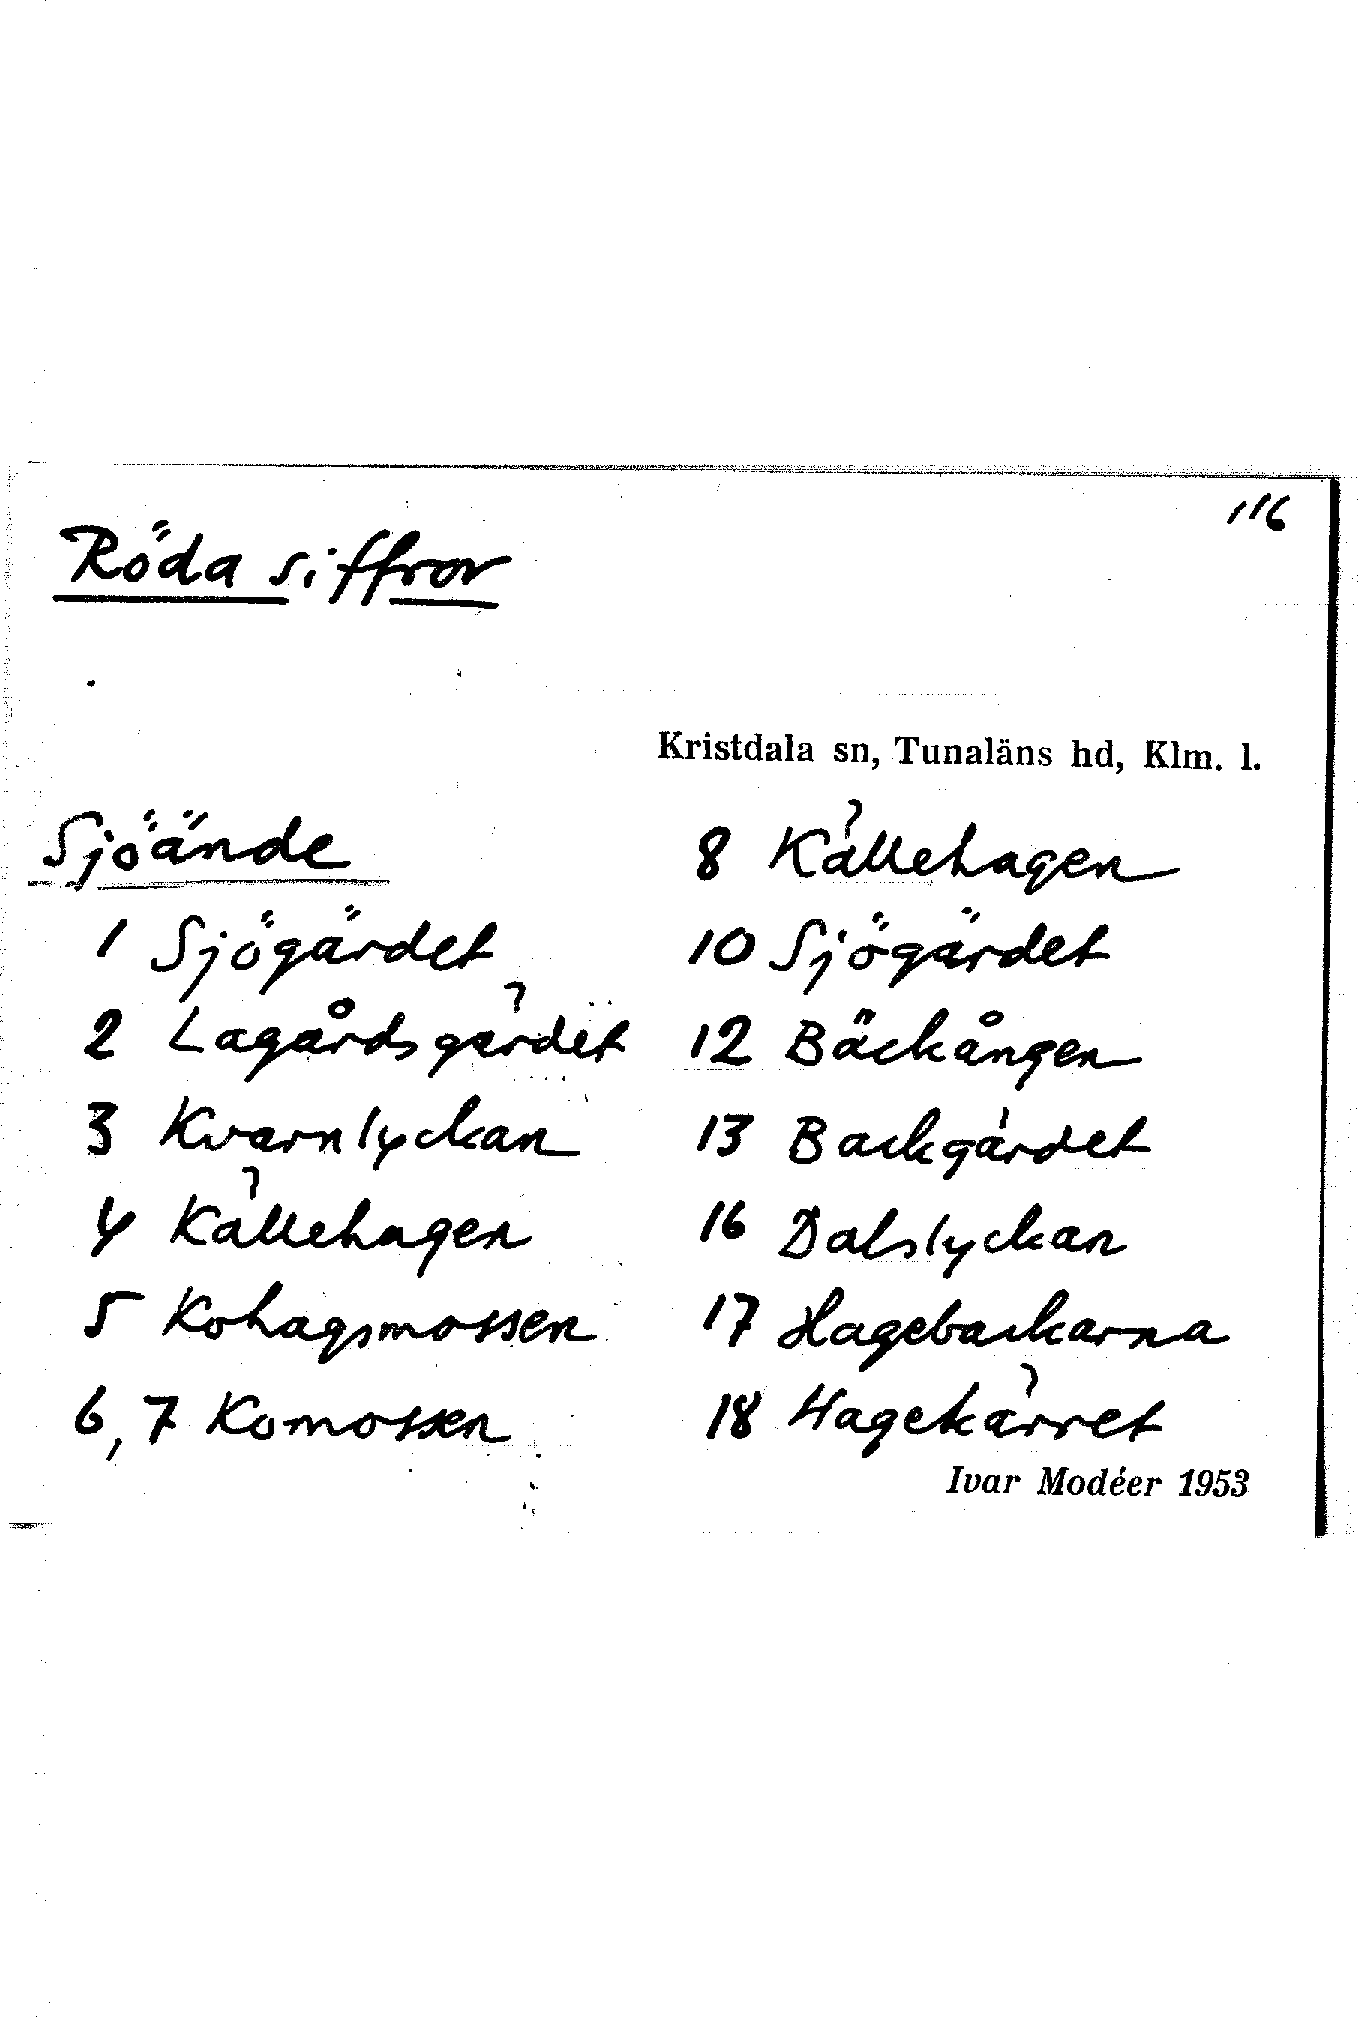 116
Röda siffror
Kristdala sn, Tunaläns hd, Klm. l.
Sjöände
1 Sjögärdet
2 Lagårdsgärdet
3 Kvarnlyckan
4 Källehagen
5 Kohagsmossen
6, 7 Komossen
8 Källehagen
10 Sjögärdet
12 Bäckången
13 Backgärdet
16 Dalslyckan
17 Hagebackarna
18 Hagekärret
Ivar Modéer 1953